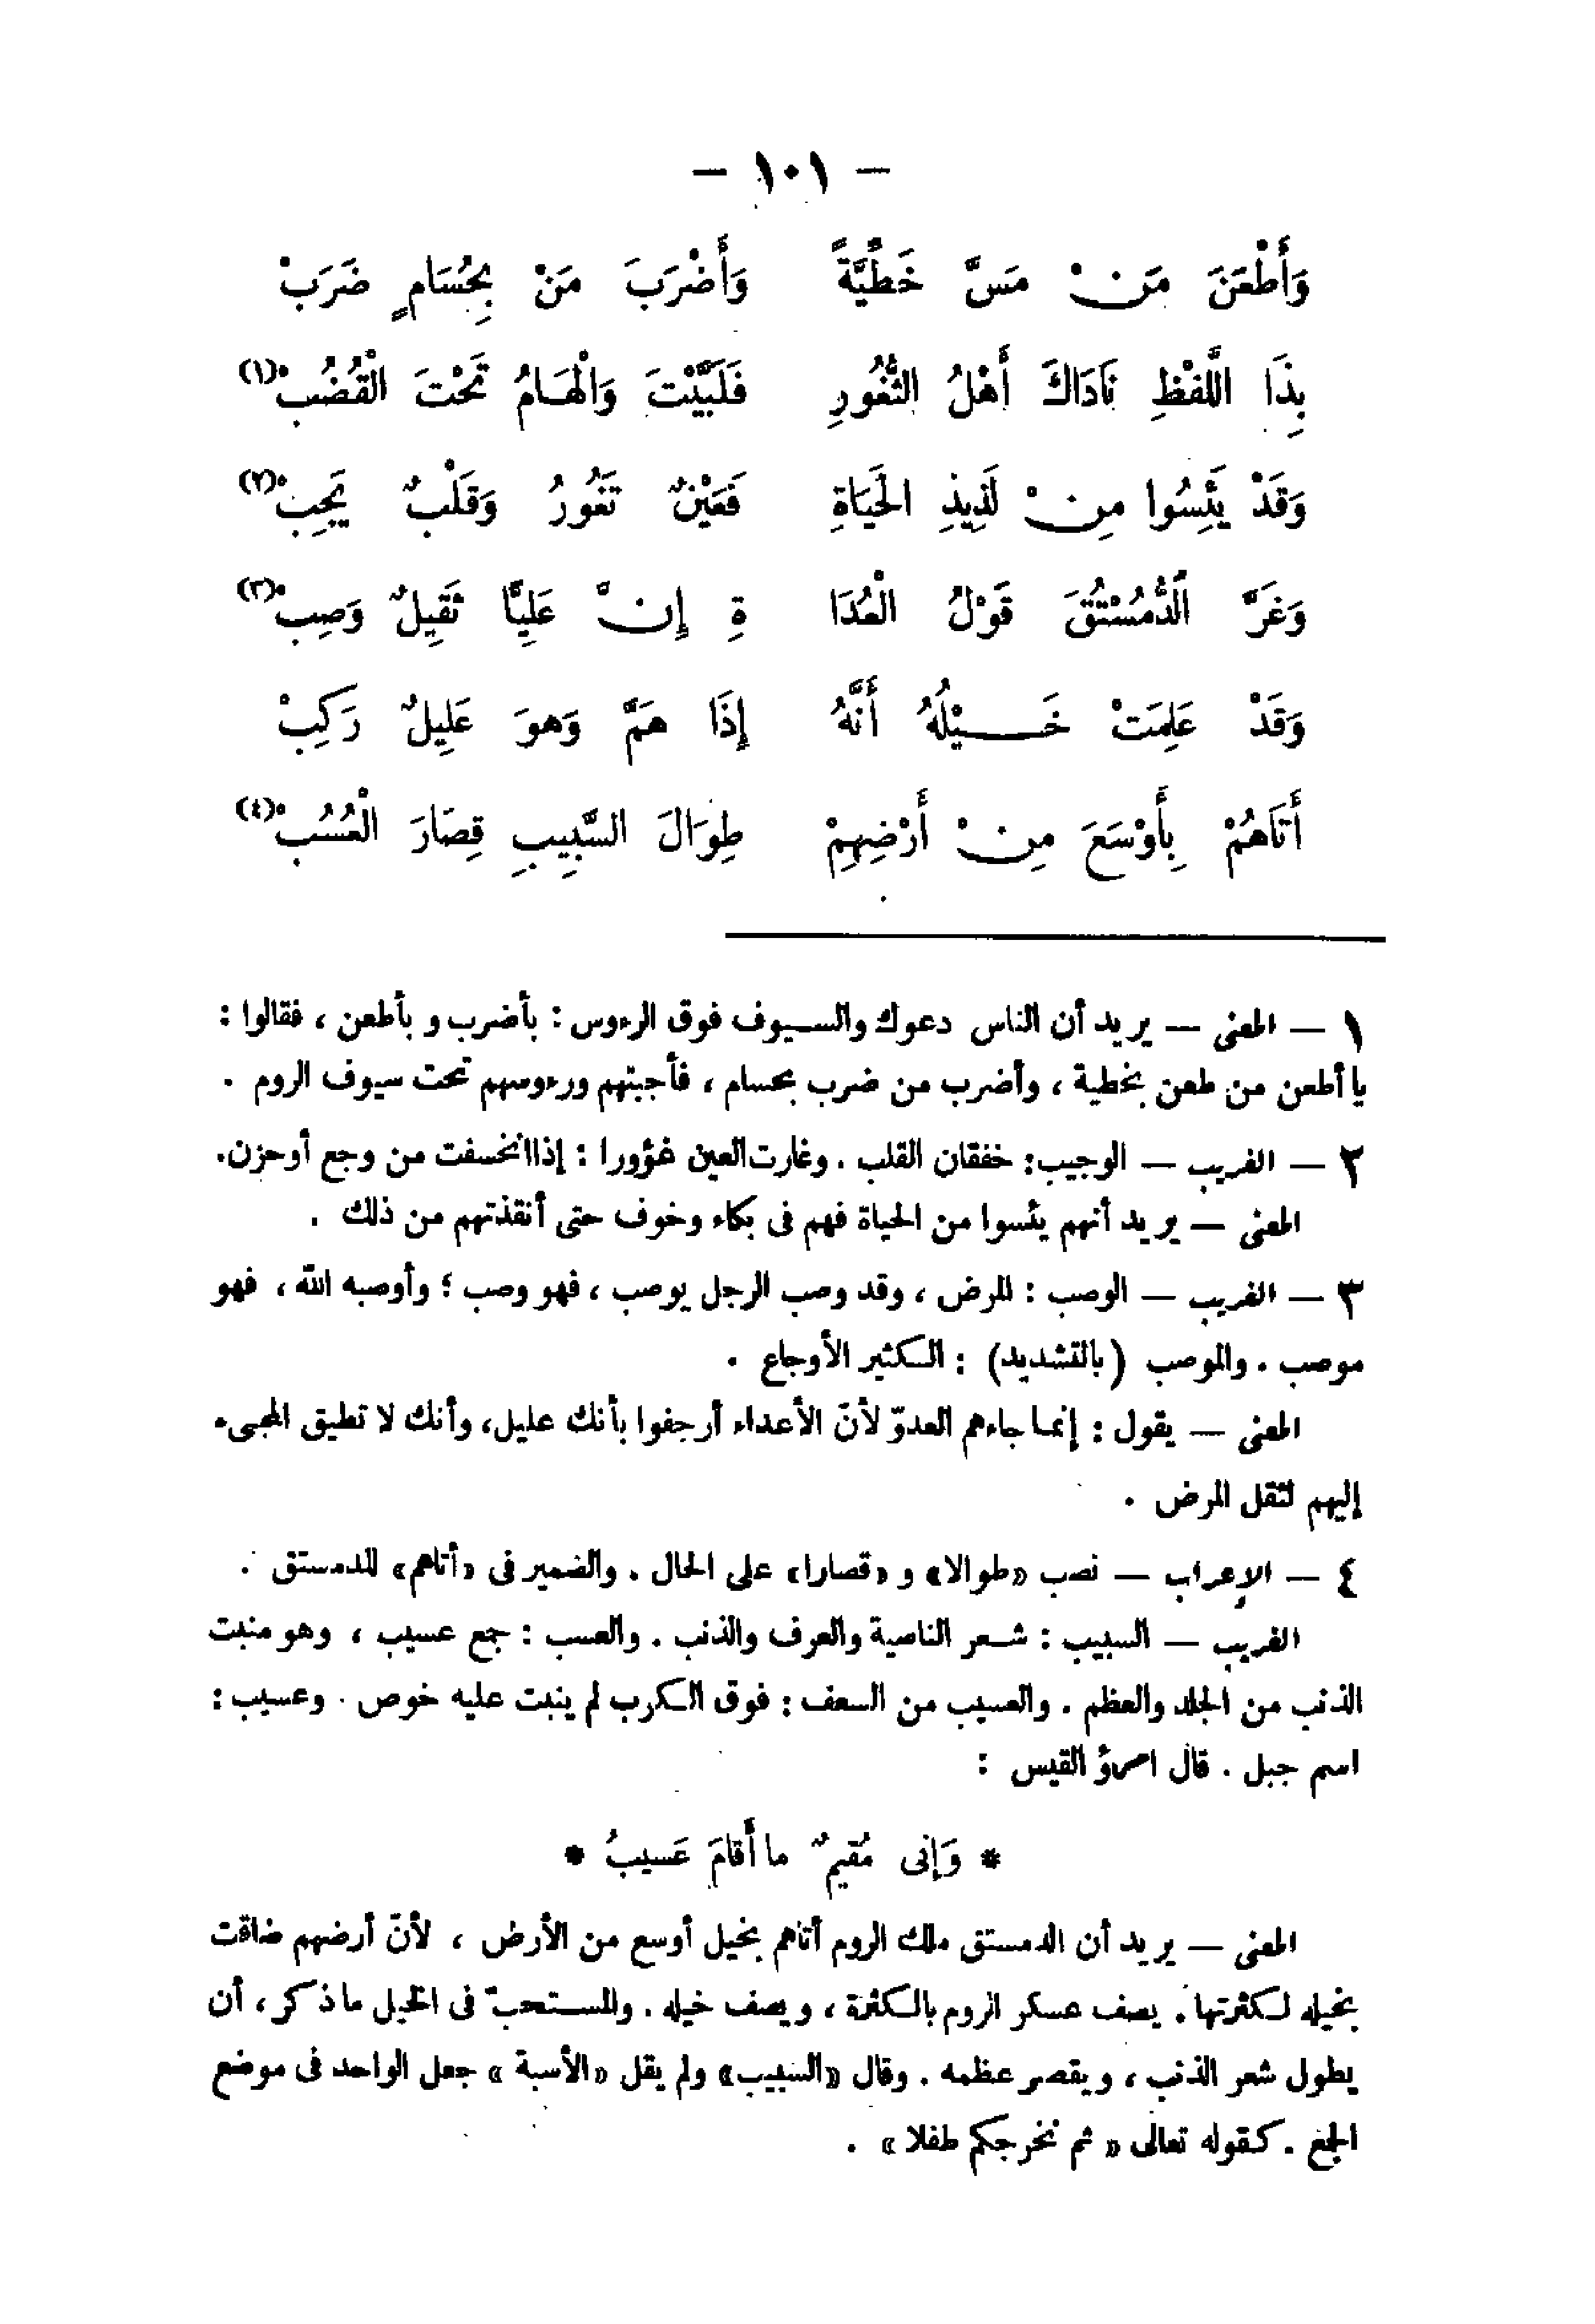 — ١٠١ —
وَأَطْعَنَ مَنْ مَسَّ خَطِّيَّةً وَأَضْرَبَ مَنْ بِحُسَامٍ ضَرَبْ
بِذَا اللَّفْظِ نَادَاكَ أَهْلُ الثُّغُورِ فَلَبَّيْتَ وَالْهَامُ تَحْتَ الْقُضُبْ(١)
وَقَدْ يَئِسُوا مِنْ لَذِيذِ الحَيَاةِ فَعَيْنٌ تَغُورُ وَقَلْبٌ يَجِبْ(٢)
وَغَرَّ الدُّمُسْتُقَ قَوْلُ الْعُدَا ةِ إِنَّ عَلِيًّا ثَقِيلٌ وَصِبْ(٣)
وَقَدْ عَلِمَتْ خَيْلُهُ أَنَّهُ إِذَا هَمَّ وَهوَ عَلِيلٌ رَكِبْ
أَتَاهُمْ بِأَوْسَعَ مِنْ أَرْضِهِمْ طِوَالَ السَّبِيبِ قِصَارَ الْعُسُبْ(٤)
١ — المعنى — يريد أن الناس دعوك والسيوف فوق الرءوس : بأضرب وبأطعن ، فقالوا :
يا أطعن من طعن بخطية ، وأضرب من ضرب بحسام ، فأجبتهم ورءوسهم تحت سيوف الروم .
٢ — الغريب — الوجيب: خفقان القلب . وغارت العين غؤورا : إذا انخسفت من وجع أو حزن.
المعنى — يريد أنهم يئسوا من الحياة فهم فى بكاء وخوف حتى أنقذتهم من ذلك .
٣ — الغريب — الوصب : المرض ، وقد وصب الرجل يوصب ، فهو وصب ؛ وأوصبه الله ، فهو
موصب . والموصب (بالتشديد) : الكثير الأوجاع .
المعنى — يقول : إنما جاءهم العدوّ لأنّ الأعداء أرجفوا بأنك عليل، وأنك لا تطيق المجىء
إليهم لثقل المرض .
٤ — الإعراب — نصب «طوالا» و «قصارا» على الحال . والضمير فى «أتاهم» للدمستق .
الغريب — السبيب : شعر الناصية والعرف والذنب . والعسب : جمع عسيب ، وهو منبت
الذنب من الجلد والعظم . والعسيب من السعف : فوق الكرب لم ينبت عليه خوص . وعسيب :
اسم جبل . قال امرؤ القيس :
* وَإنى مُقيمٌ ما أَقامَ عَسيبُ *
المعنى — يريد أن الدمستق ملك الروم أتاهم بخيل أوسع من الأرض ، لأنّ أرضهم ضاقت
بخيله لكثرتها . يصف عسكر الروم بالكثرة ، ويصف خيله . والمستحبّ فى الخيل ما ذكر ، أن
يطول شعر الذنب ، ويقصر عظمه . وقال «السبيب» ولم يقل «الأسبة» جعل الواحد فى موضع
الجمع . كقوله تعالى « ثم نخرجكم طفلا » .